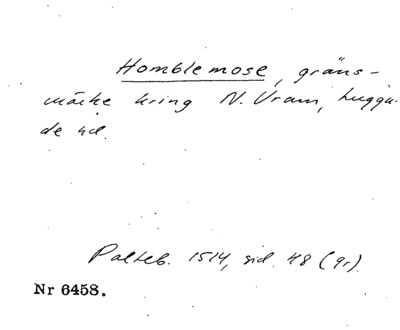 Homblemose, gräns-
märke kring N. Vram, Luggu-
de hd.
Palteb. 1514, sid. 48 (gr).
Nr 6458.